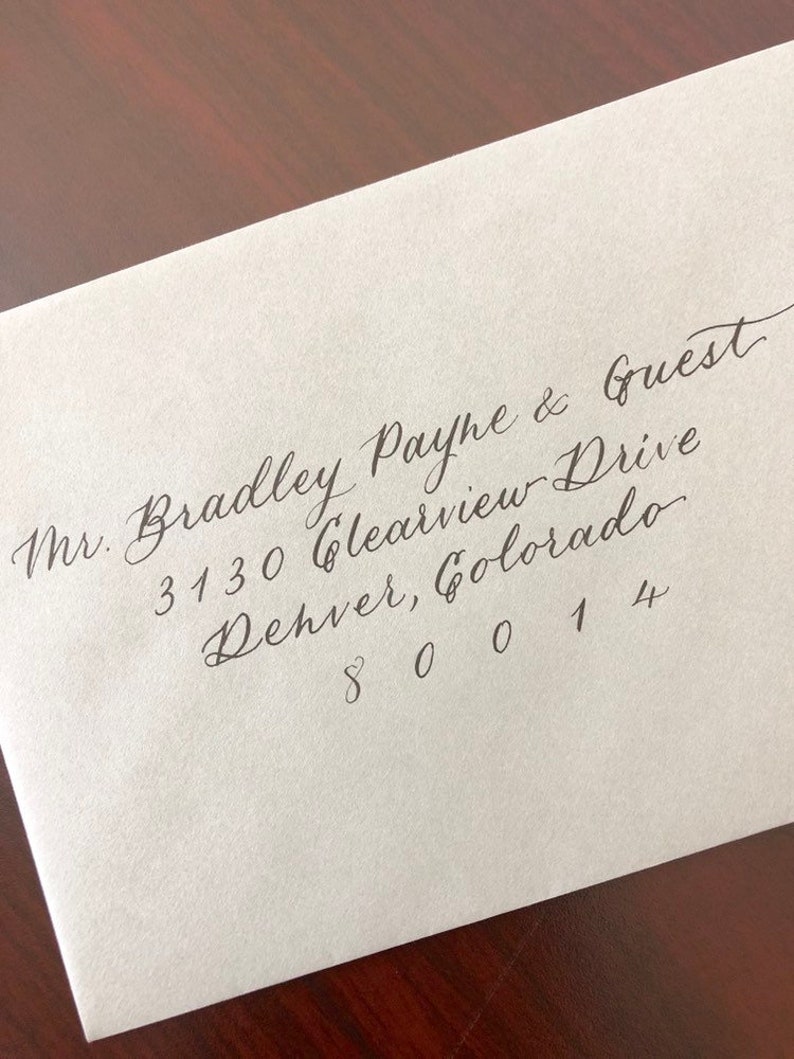 Mr. Bradley Payne & Guest
3130 Clearview Drive
Denver, Colorado
80014